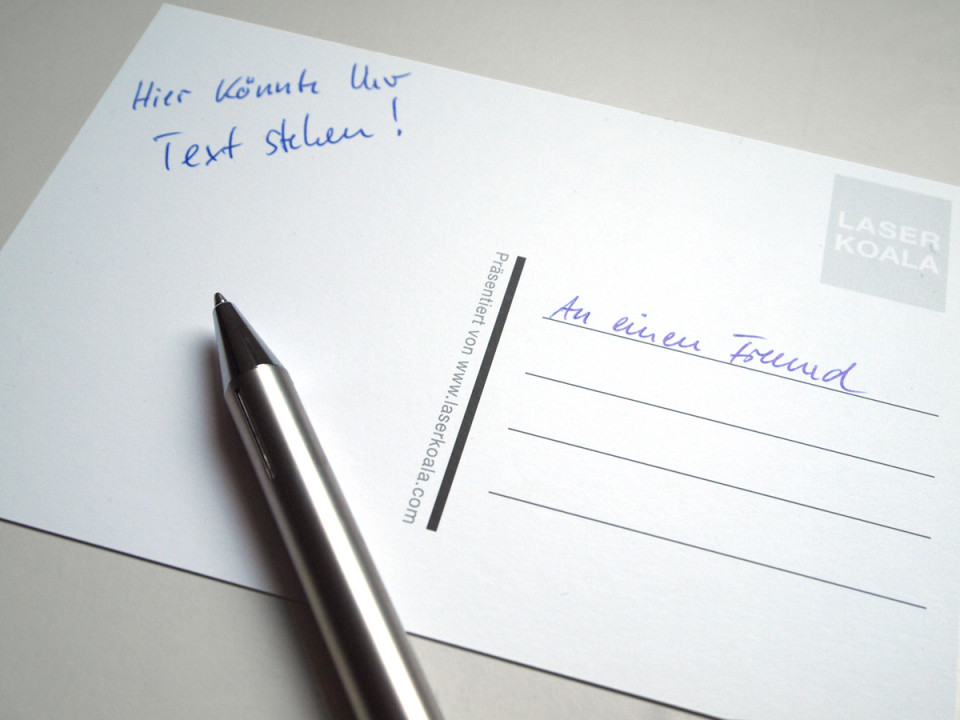 Hier könnte Ihr
Text stehen!
LASER
KOALA
Präsentiert von www.laserkoala.com
An einen Freund